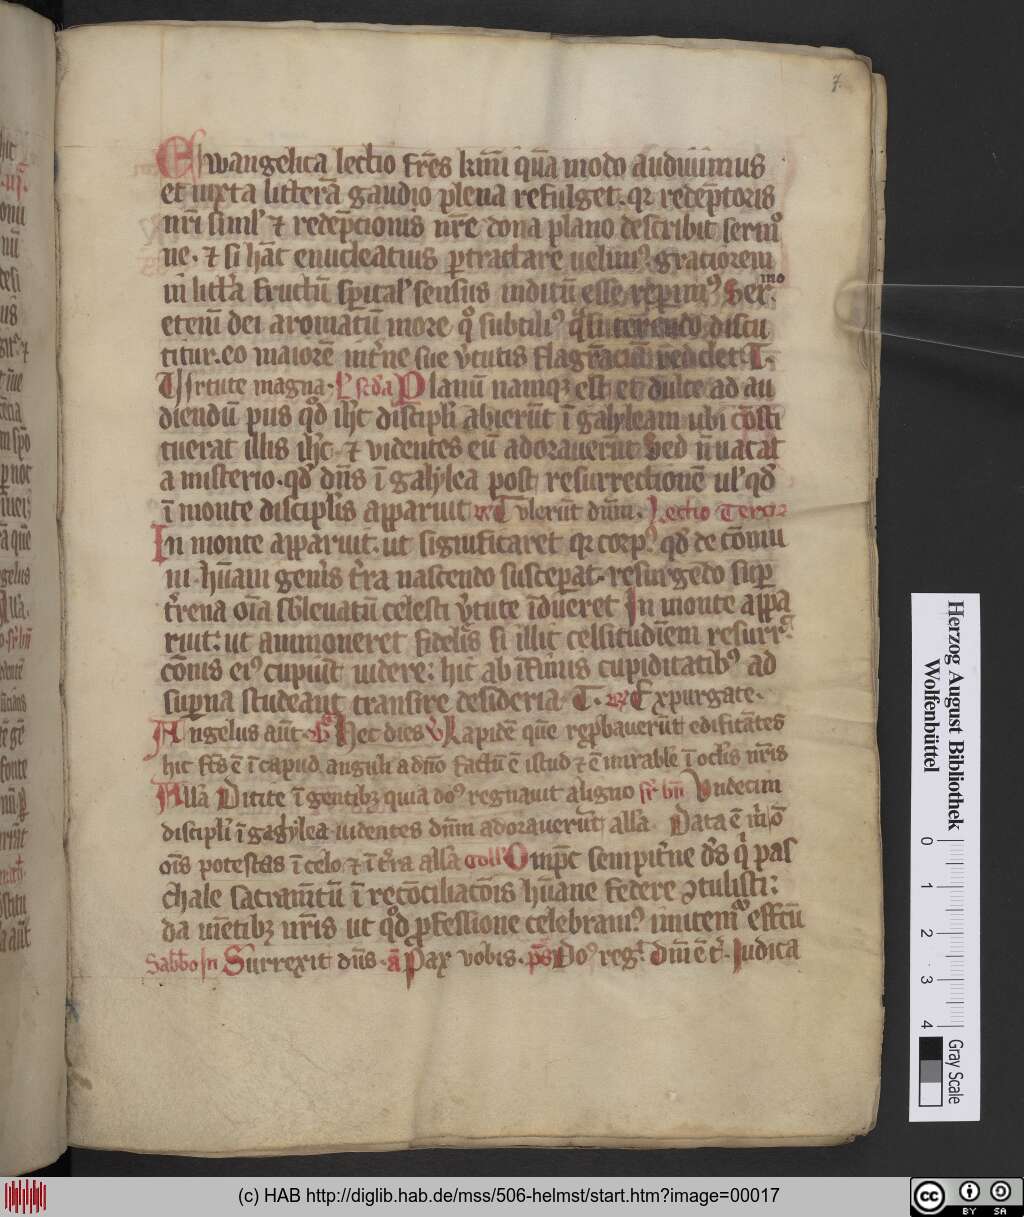 7.
Ewangelica lectio fr̄es kmī quā modo audiuimus
et iuxta litterā gaudio plena refulget. qr redēptoris
nr̄i siml' ⁊ redēpcionis nr̄e dona plano describit sermo
ne. ⁊ si hāc enucleatius ꝑtractare uelimꝰ. graciorem
in litt'a fructū sp̄ital' sensus inditū esse reperimꝰ. Her. mo
etenī dei aromatū more qͦ subtiliꝰ discu
titur. eo maiorē int'ne sue v'tutis redolet. T.
magna. L Planū namqꝫ est et dulce ad au
diendū pus qͦd ih̄c discipli abierūt ī galyleam ubi cōsti
tuerat illis ih̄c. ⁊ videntes eū adorauerūt Sed n̄ uacat
a misterio. qd' dn̄s ī galylea post resurrectionē ul' qd'
ī monte disciplis apparuit Tulerūt dn̄m. Lectio Tercia
In monte apparuit. ut significaret qr corpꝰ qd' de cōmu
ni hūani gen'is t'ra nascendo susceperat. resurgēdo sup
t'rena oīa sb'leuatū celesti v'tute īdueret In monte appa
ruit: ut ammoneret fideles si illic celsitudinem resurr
cōnis eiꝰ cupiūt uidere: hic ab īfimis cupiditatibꝰ ad
sup̄na studeant transire desideria. T. Expurgate.
Angelus aūt. Hec dies Lapidē quē reprobauerūt edificātes
hic fcs ē ī capud anguli a dn̄o factū ē istud ⁊ ē mirabile ī oclis nr̄is
All'a Dicite ī gentibꝫ quia doꝰ regnauit a ligno Vndecim
discipli ī galylea uidentes dn̄m adorauerūt all'a Data ē m' ō
oīs potestas ī celo ⁊ ī t'ra all'a Coll' Omp̄c sempit'ne d's q' pas
chale sacramtū ī recōciliacōis hūane federe ꝯtulisti:
da mētibꝫ nr̄is ut qͦd ꝓfessione celebramꝰ imitemꝰ effcū
Sabb'o In Surrexit dn̄s. a Pax vobis. ps Doꝰ reg'. Dīm ē t'. Iudica
Herzog August Bibliothek
Wolfenbüttel
0 1 2 3 4
Gray Scale
(c) HAB http://diglib.hab.de/mss/506-helmst/start.htm?image=00017
cc BY SA